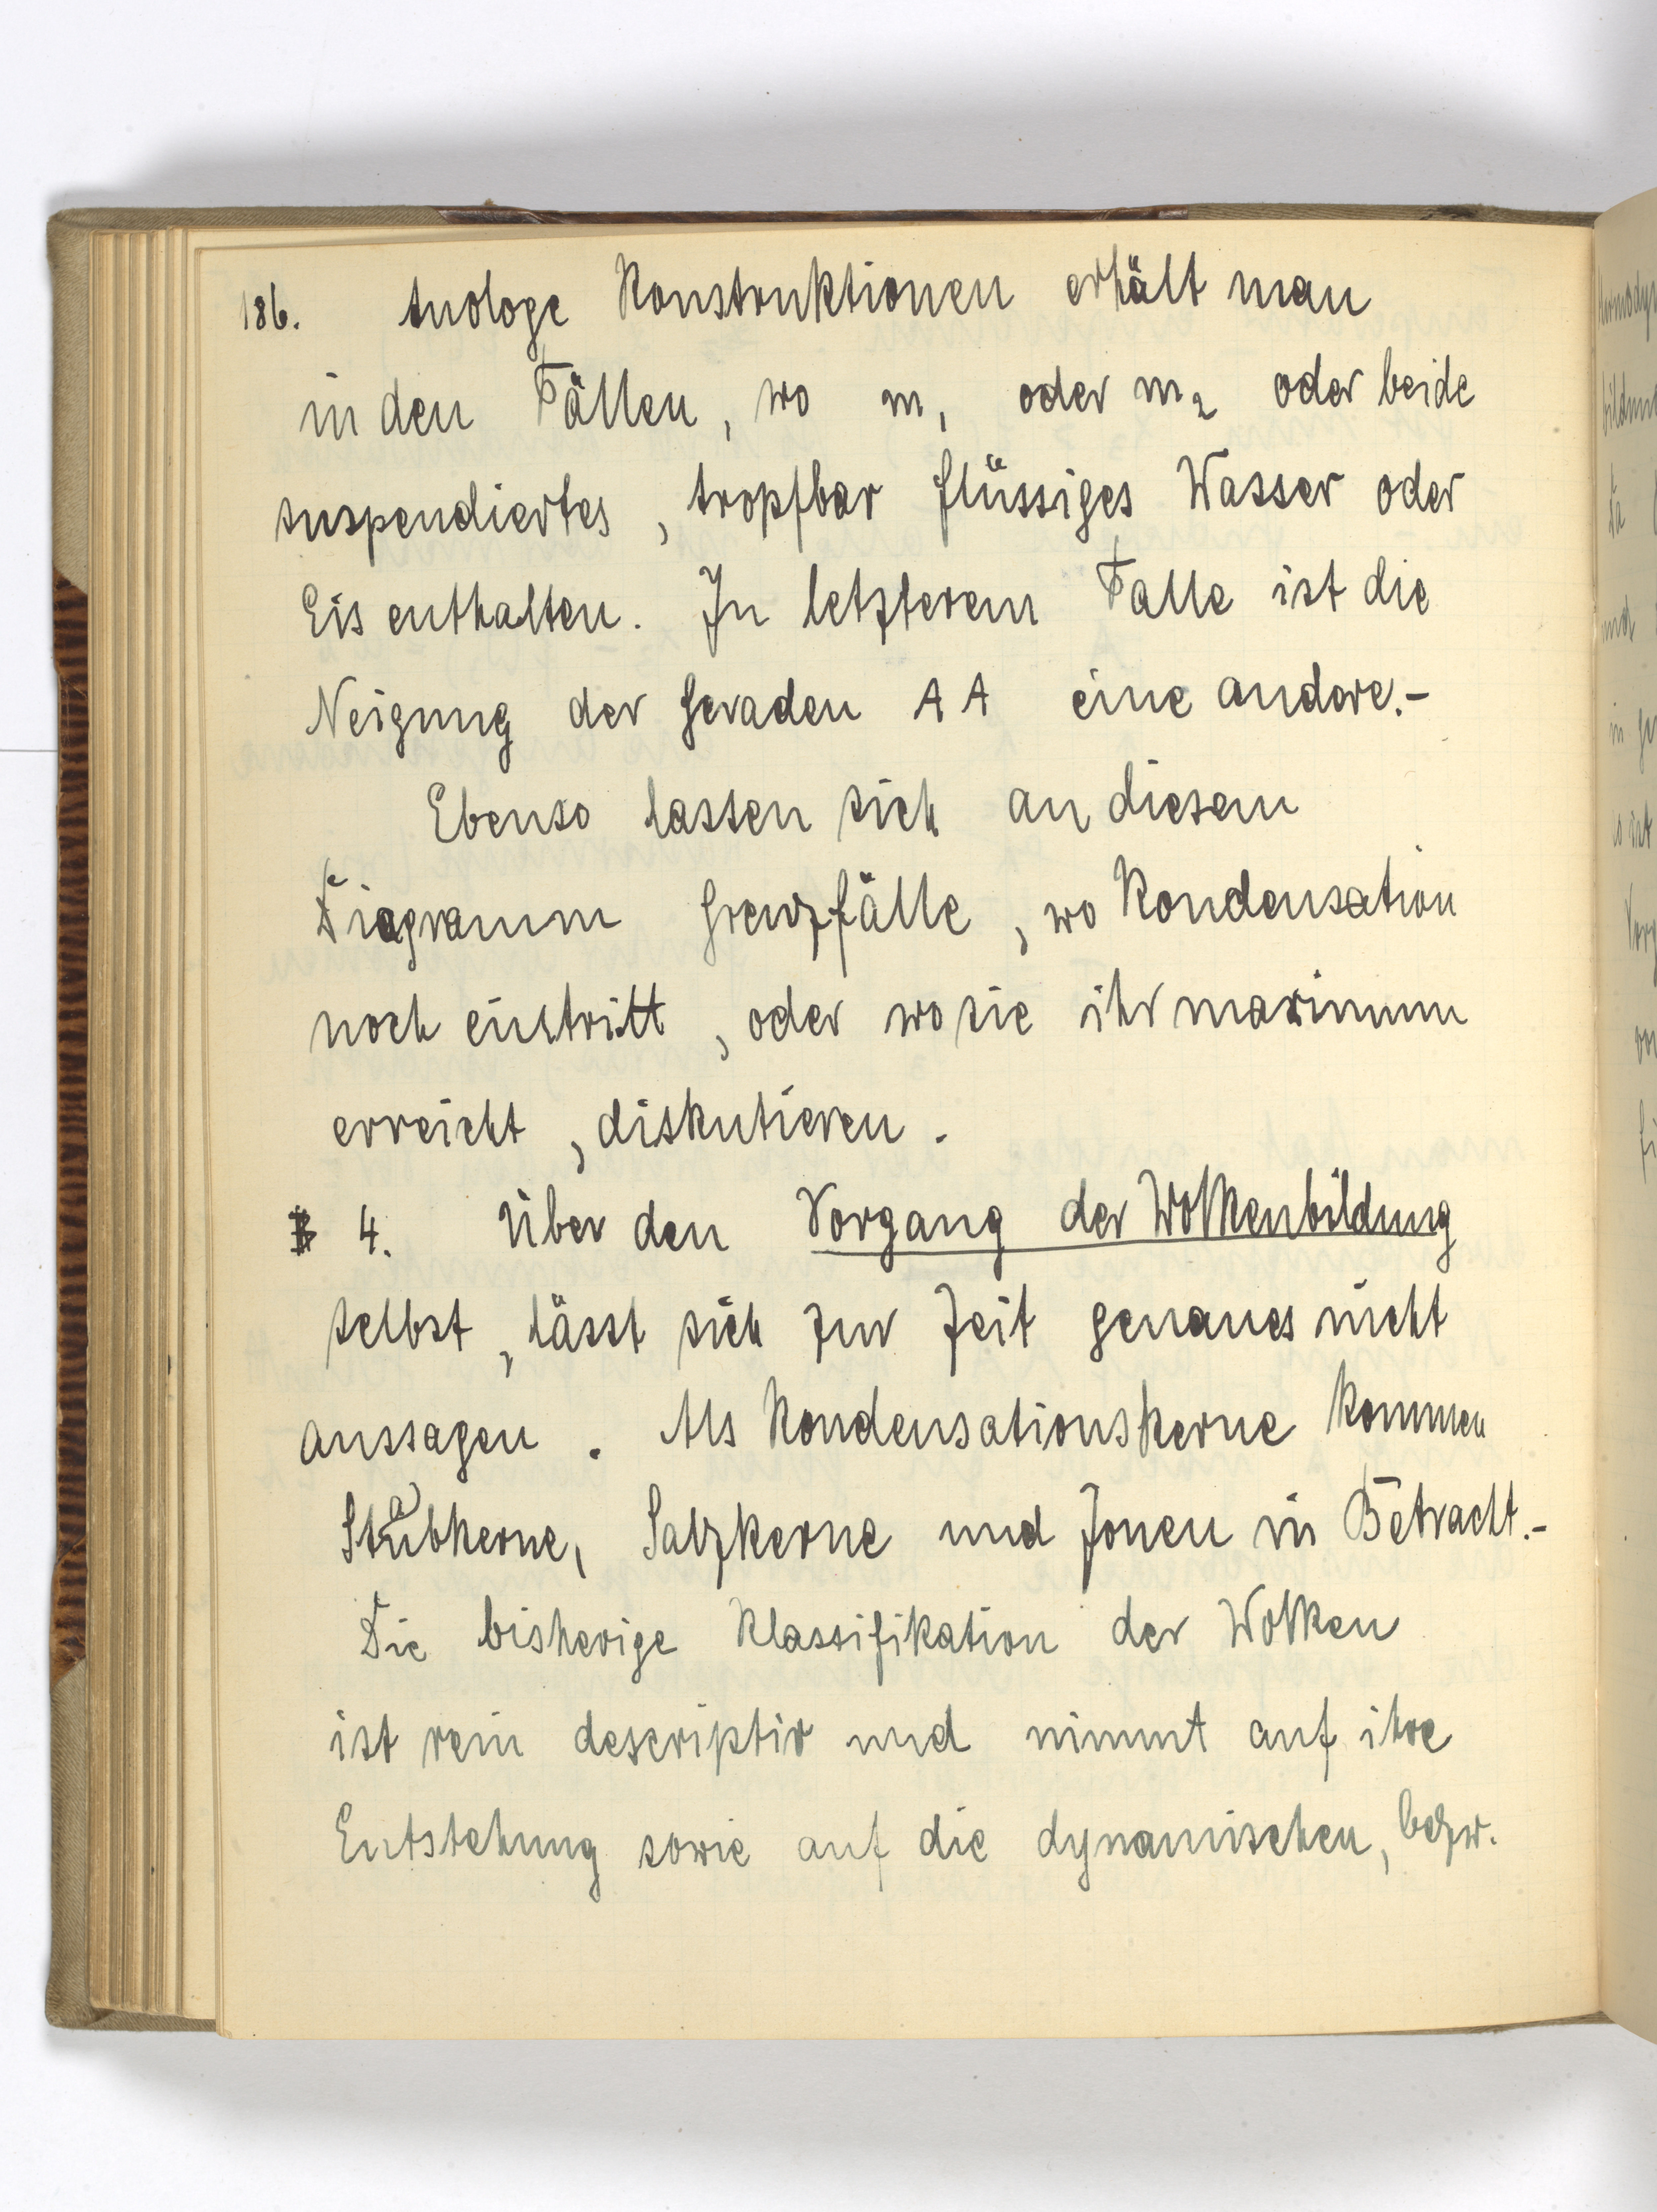 186. Anologe Konstruktionen erhält man
in den Fällen, wo m₁ oder m₂ oder beide
suspendiertes, tropfbar flüssiges Wasser oder
Eis enthalten. In letzterem Falle ist die
Neigung der Geraden A A eine andere.-
Ebenso lassen sich an diesem
Diagramm Grenzfälle, wo Kondensation
noch eintritt, oder wo sie ihr maximum
erreicht, diskutieren.
§ 4. Über den Vorgang der Wolkenbildung
selbst, lässt sich zur Zeit genaues nicht
aussagen. Als Kondensationskerne kommen
Staubkerne, Salzkerne und Jonen in Betracht.-
Die bisherige Klassifikation der Wolken
ist rein descriptiv und nimmt auf ihre
Entstehung sowie auf die dynamischen, bezw.